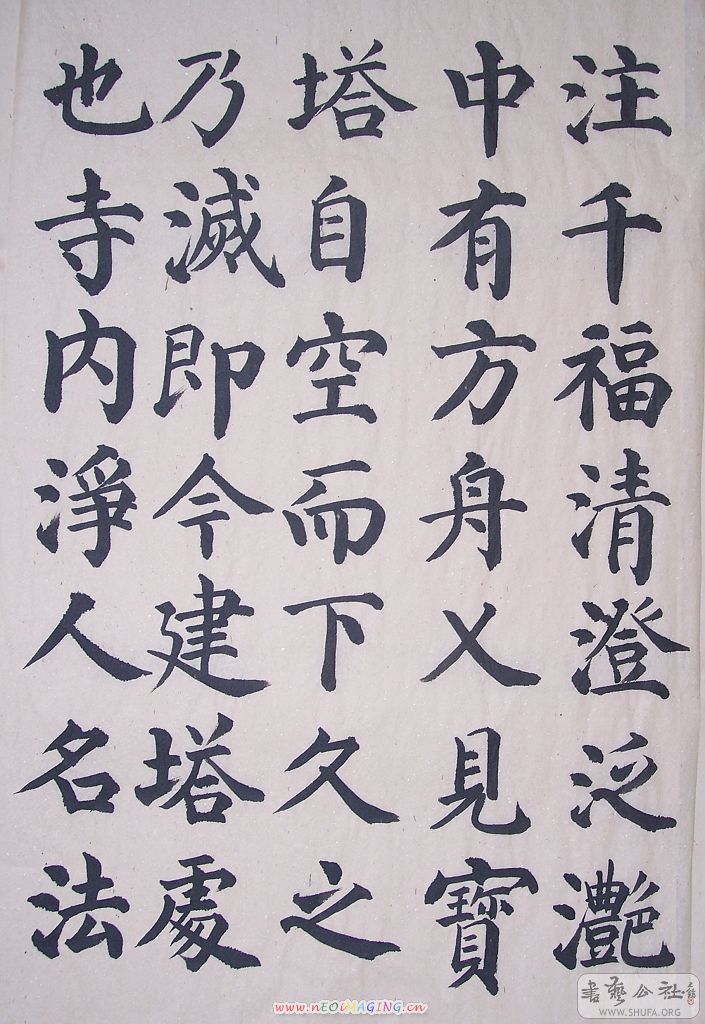 注千福清澄泛灔
中有方舟乂見寶
塔自空而下久之
乃滅即今建塔處
也寺内淨人名法
書藝公社
WWW.SHUFA.ORG
www.nEOiMAGiNG.cn